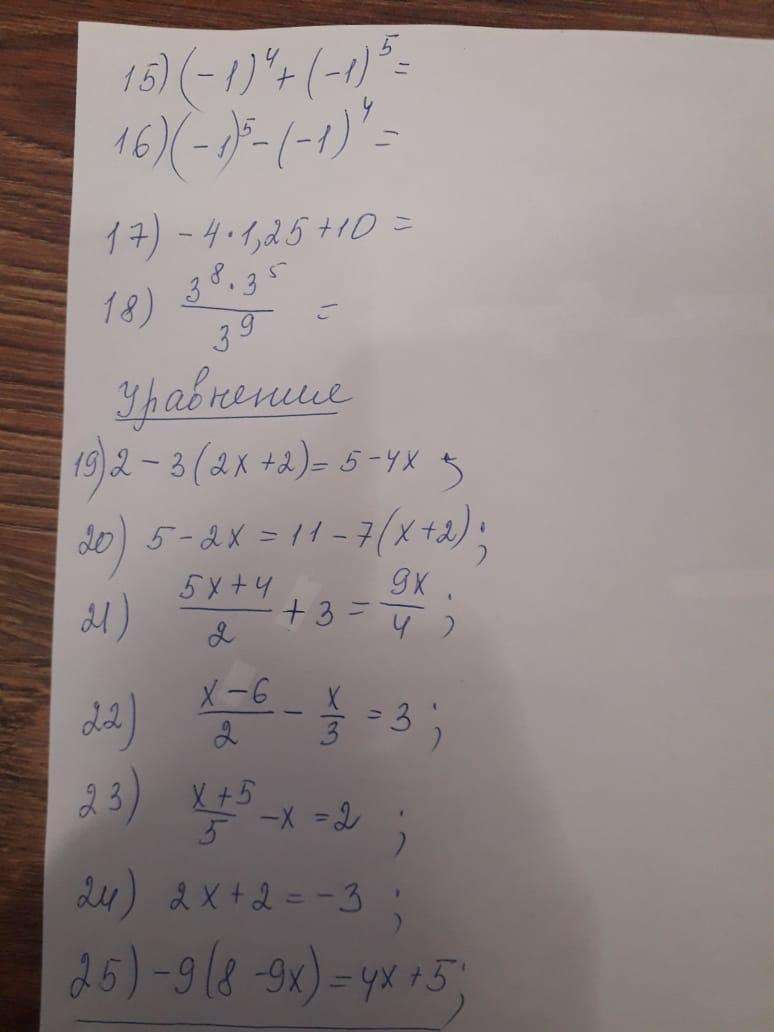 15) (-1)⁴ + (-1)⁵ =
16) (-1)⁵ - (-1)⁴ =
17) - 4 · 1,25 + 10 =
18) (3⁸ · 3⁵)/3⁹ =
Уравнение
19) 2 - 3(2x + 2) = 5 - 4x ;
20) 5 - 2x = 11 - 7(x + 2) ;
21) (5x + 4)/2 + 3 = 9x/4 ;
22) (x - 6)/2 - x/3 = 3 ;
23) (x + 5)/5 - x = 2 ;
24) 2x + 2 = -3 ;
25) -9(8 - 9x) = 4x + 5 ;